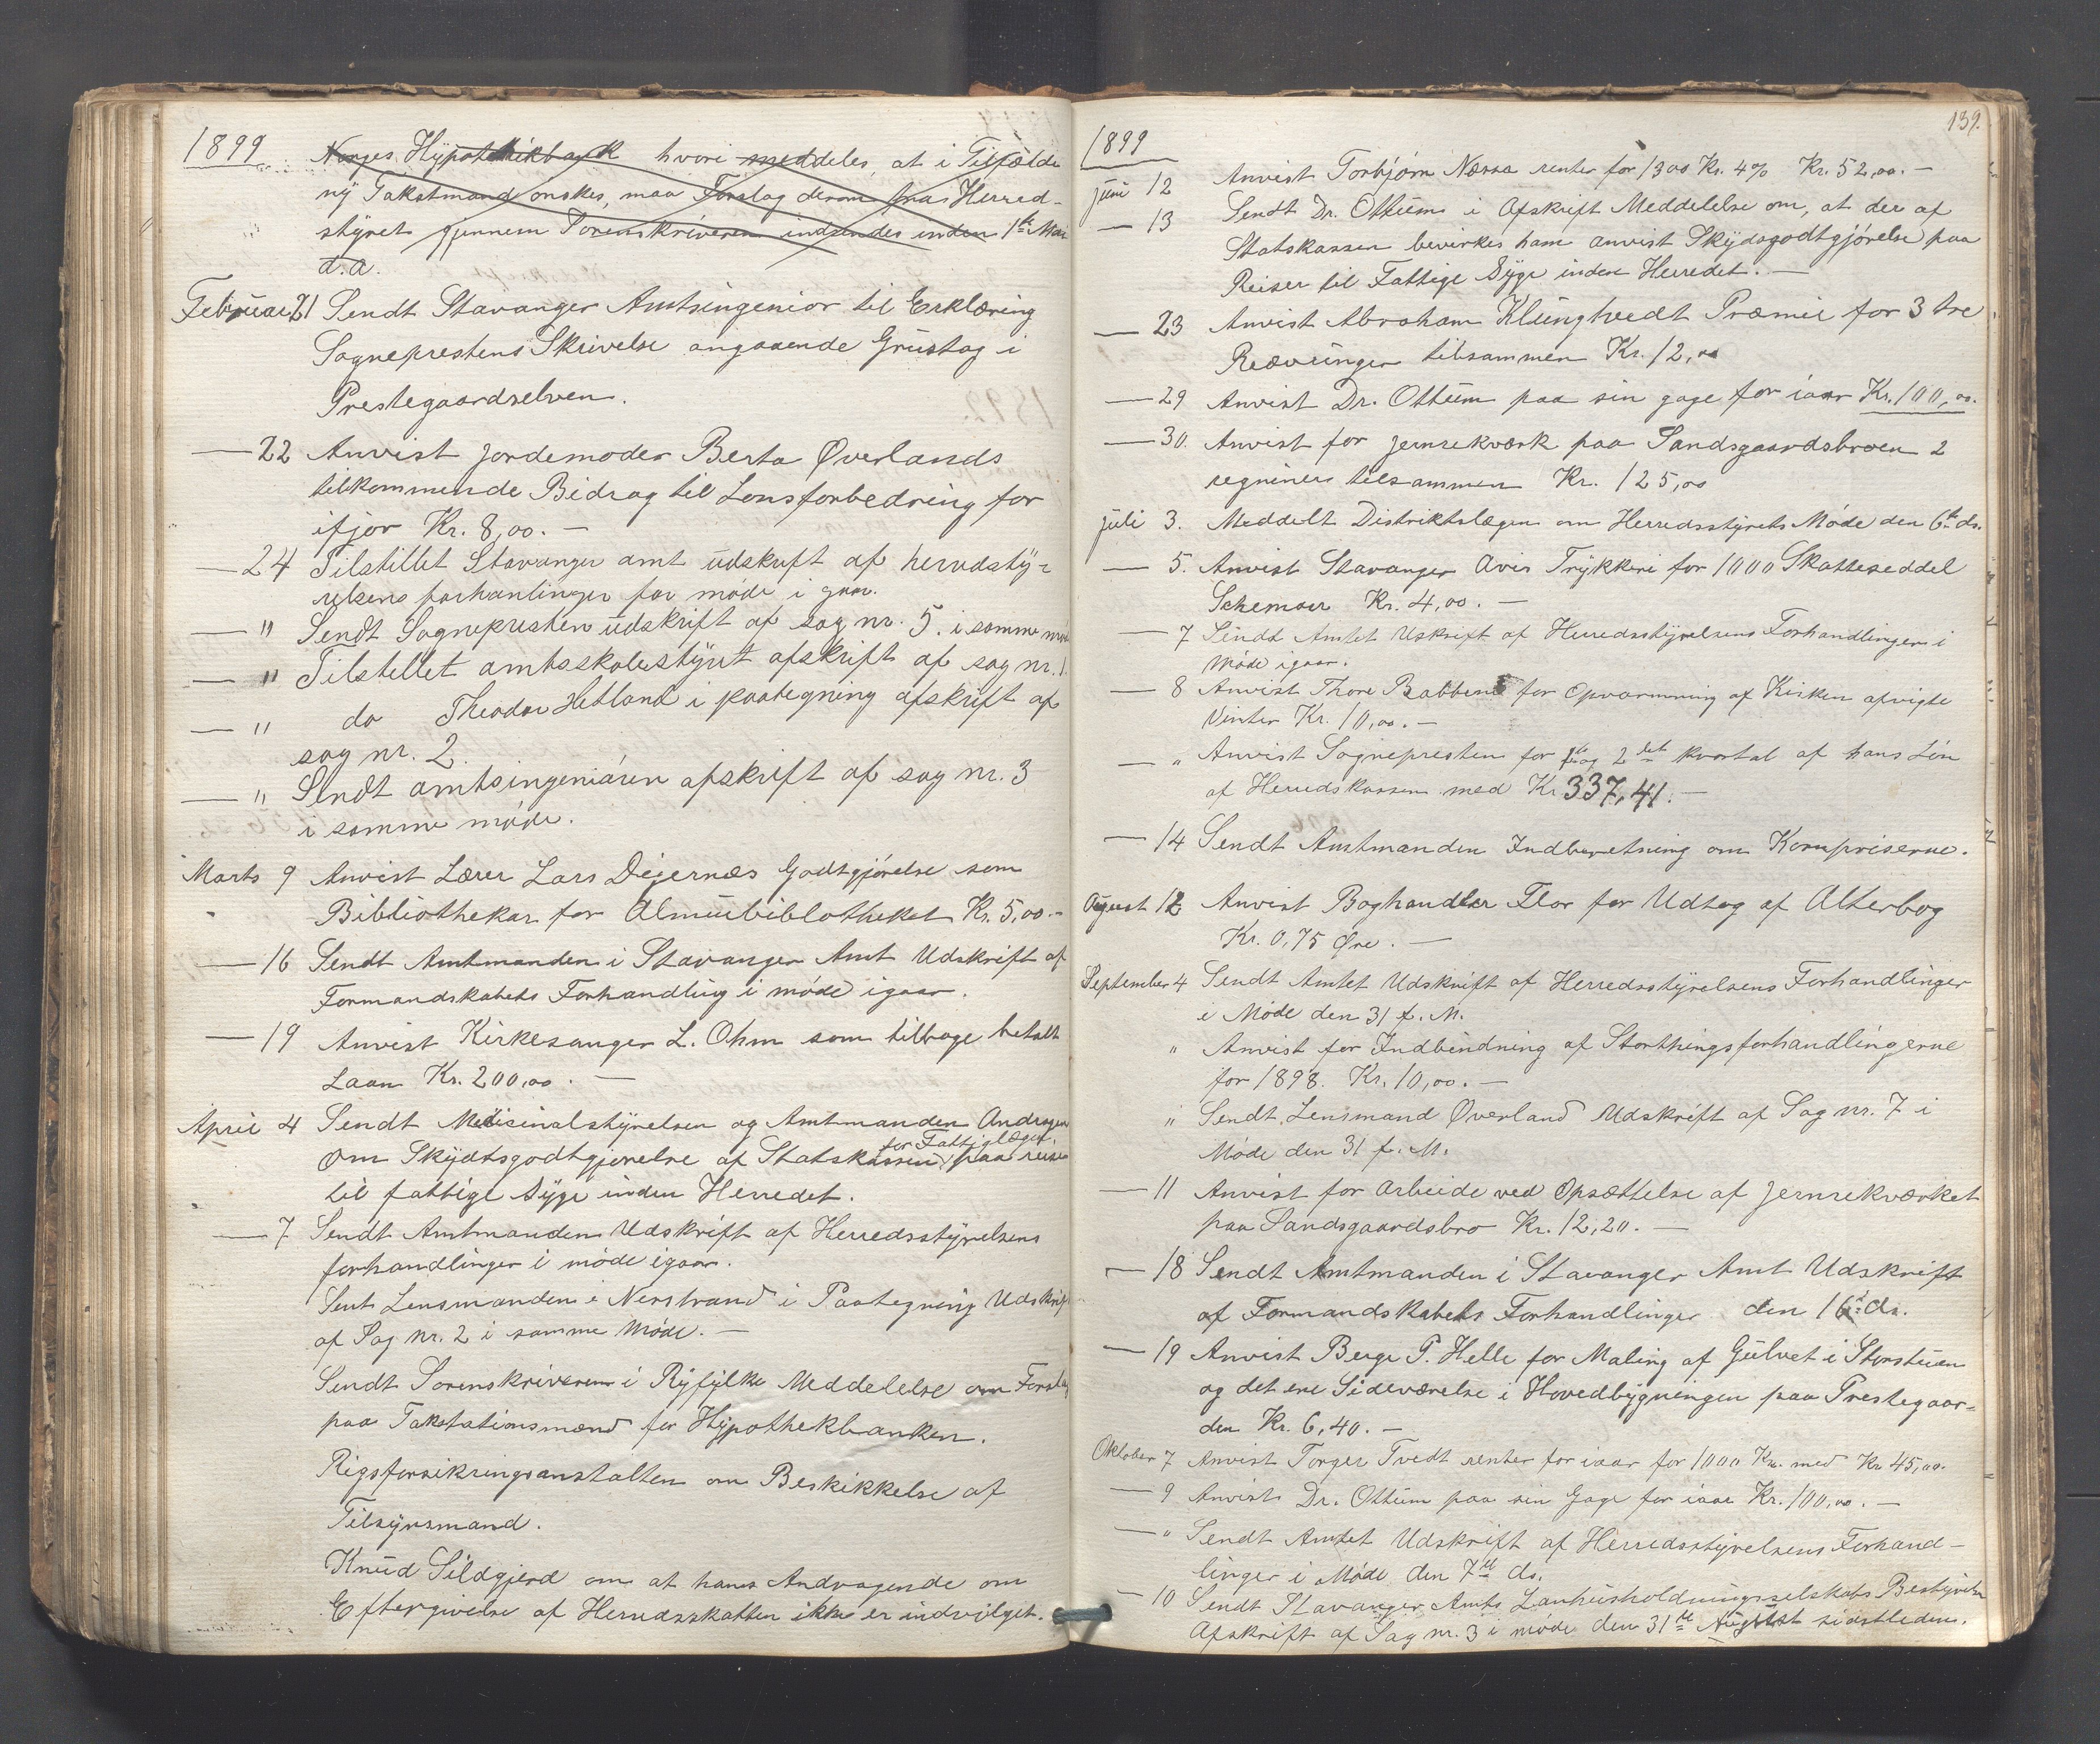 1899
Norges Hypothekbank hvori meddeles, at i Tilfælde
ny Takstmand ønskes, maa Forslag derom fra Herred-
styret gjennem Sorenskriveren indsendes inden 1ste Mai
d.a.
Februar 21 Sendt Stavanger Amtsingeniør til Erklæring
Sogneprestens Skrivelse angaaende Grustag i
Prestegaardselven.
— 22 Anvist Jordemoder Berta Øverlands
tilkommende Bidrag til Lønsforbedring for
ifjor Kr. 8,00. —
— 24 Tilstillet Stavanger amt udskrift af herredsty-
relsens forhanlinger for møde i gaar.
— " Sendt Sognepresten udskrift af sag nr. 5. i samme møde
— " Tilstillet amtsskolestyret afskrift af sag nr. 1.
— " do Theodor Hetland i paategning afskrift af
sag nr. 2.
— " Sendt amtsingeniøren afskrift af sag nr. 3
i samme møde.
Marts 9 Anvist Lærer Lars Dejernæs Godtgjørelse som
Bibliothekar for Almuebiblotheket Kr. 5,00.-
— 16 Sendt Amtmanden i Stavanger Amt Udskrift af
Formandskabets Forhandling i møde igaar.
— 19 Anvist Kirkesanger L. Ohm som tilbage betalt
Laan Kr. 200,00. —
April 4 Sendt Medicinalstyrelsen og Amtmanden Andragen
for Fattiglægen
om Skydtsgodtgjørelse af Statskassen paa reise
til fattige syge inden Herredet.
— 7 Sendt Amtmanden Udskrift af Herredsstyrelsens
forhandlinger i møde igaar.
Sent Lensmanden i Nerstrand i Paategning Udskrift
af Sag nr. 2 i samme Møde. —
Sendt Sorenskriveren i Ryfylke Meddelelse om Forslag
paa Takstationsmænd for Hypothekbanken.
Rigsforsikringsanstalten om Beskikkelse af
Tilsynsmand.
Knud Sildgjerd om at hans Andragende om
Eftergivelse af Herredsskatten ikke er indvilget.
139.
1899
juni 12 Anvist Torbjørn Næssa renter for 1300 Kr. 4% Kr. 52,00. —
— 13 Sendt Dr. Ottums i Afskrift Meddelelse om, at der af
Statskassen bevirkes ham anvist Skydsgodtgjørelse paa
Reiser til Fattige Syge inden Herredet. —
— 23 Anvist Abraham Klungtvedt Præmie for 3 tre
Ræveunger tilsammen Kr. 12,00
— 29 Anvist Dr. Ottum paa sin gage for iaar Kr. 100,00.
— 30. Anvist for jernrekværk paa Sandsgaardsbroen 2
regniners tilsammen Kr. 125,00
juli 3. Meddelt Distriktslægen om Herredsstyrets Møde den 6te ds.
— 5. Anvist Stavanger Avis Trykkeri for 1000 Skatteseddel
Schemaer Kr. 4,00. —
— 7 Sendt Amtet Uskrift af Herredsstyrelsens Forhandlinger i
Møde igaar.
— 8 Anvist Thore Bakken for Opvarmning af Kirken afvigte
Vinter Kr. 10,00. —
— " Anvist Sognepresten for 1ste og 2det kvartal af hans Løn
af Herredskassen med Kr 337,41. —
— 14 Sendt Amtmanden Indberetning om Kornpriserne.
August 12 Anvist Boghandler Flor for Udtog af Alterbog
Kr. 0,75 Øre. —
September 4 Sendt Amtet Udskrift af Herredsstyrelsens Forhandlinger
i Møde den 31 f. M.
" Anvist for Indbindning af Storthingsforhandlingerne
for 1898. Kr. 10,00. —
" Sendt Lensmand Øverland Udskrift af Sag nr. 7 i
Møde den 31 f. M.
— 11 Anvist for Arbeide ved Opsættelse af jernrekværket
paa Sandsgaardsbro Kr. 12,20. —
— 18 Sendt Amtmanden i Stavanger Amt Udskrift
af Formandskabets Forhandlinger den 16de ds.
— 19 Anvist Berge P. Helle for Maling af Gulvet i Storstuen
og det ene Sideværelse i Hovedbygningen paa Prestegaar-
den Kr. 6,40. —
Oktober 7 Anvist Torger Tvedt renter for iaar for 1000 Kr. med Kr 45,00.
— 9 Anvist Dr. Ottum paa sin Gage for iaar Kr. 100,00. —
— " Sendt Amtet Udskrift af Herredsstyrelsens Forhand-
linger i Møde den 7de ds.
— 10 Sendt Stavanger Amts Lanhusholdningsselskabs Bestyrelse
Afskrift af Sag nr. 3 i møde den 31te August sidstleden.